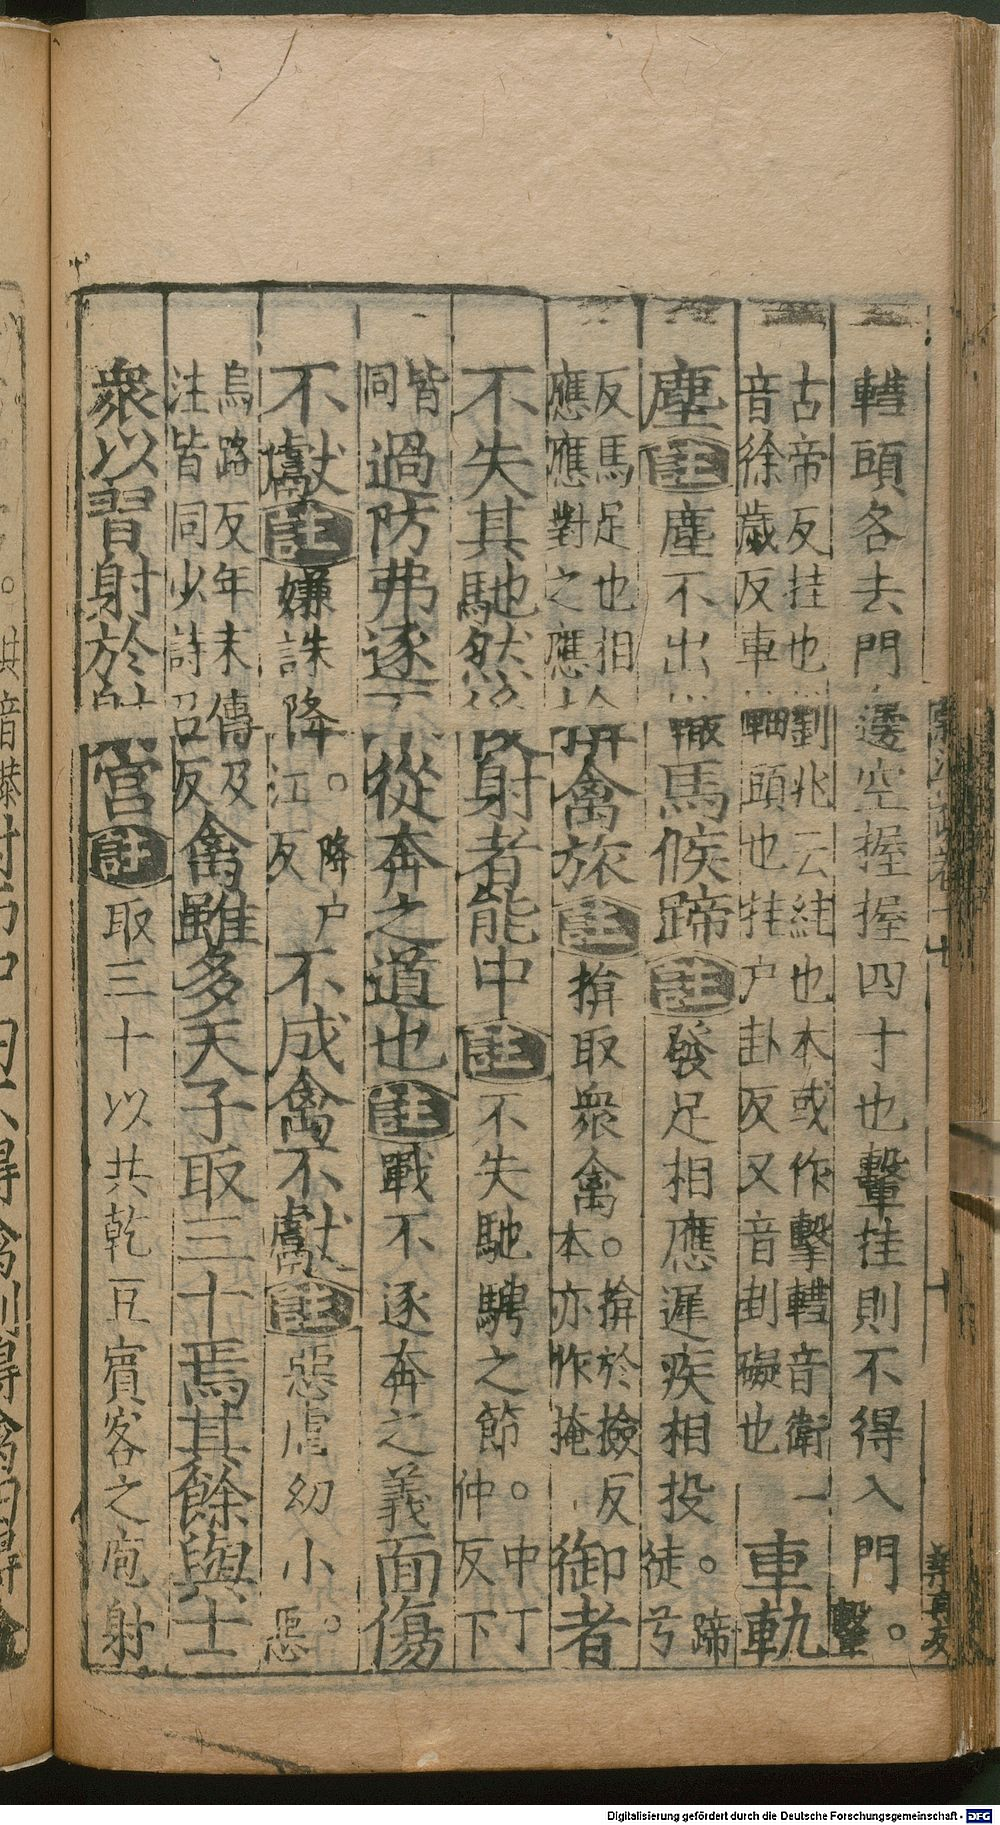 轊頭各去門邊空握握四寸也轚挂則不得入門。轚
古帝反挂也劉兆云絓也本或作擊轊音衛一
音徐歲反車軸頭也挂户卦反又音卦礙也
車軌
塵註塵不出轍馬候蹄註發足相應遲疾相投。蹄
徒兮
反馬足也相
應應對之應
揜禽旅註揜取衆禽。揜於撿反
本亦作掩
御者
不失其馳然後射者能中註不失馳騁之節。中丁
仲反下
皆
同
過防弗逐不從奔之道也註戰不逐奔之義面傷
不獻註嫌誅降。降户
江反
不成禽不獻註惡虐幼小。惡
烏路反年末傳及
注皆同少詩召反
禽雖多天子取三十焉其餘與士
衆以習射於射宮註取三十以共乾豆賓客之庖射
Digitalisierung gefördert durch die Deutsche Forschungsgemeinschaft - DFG